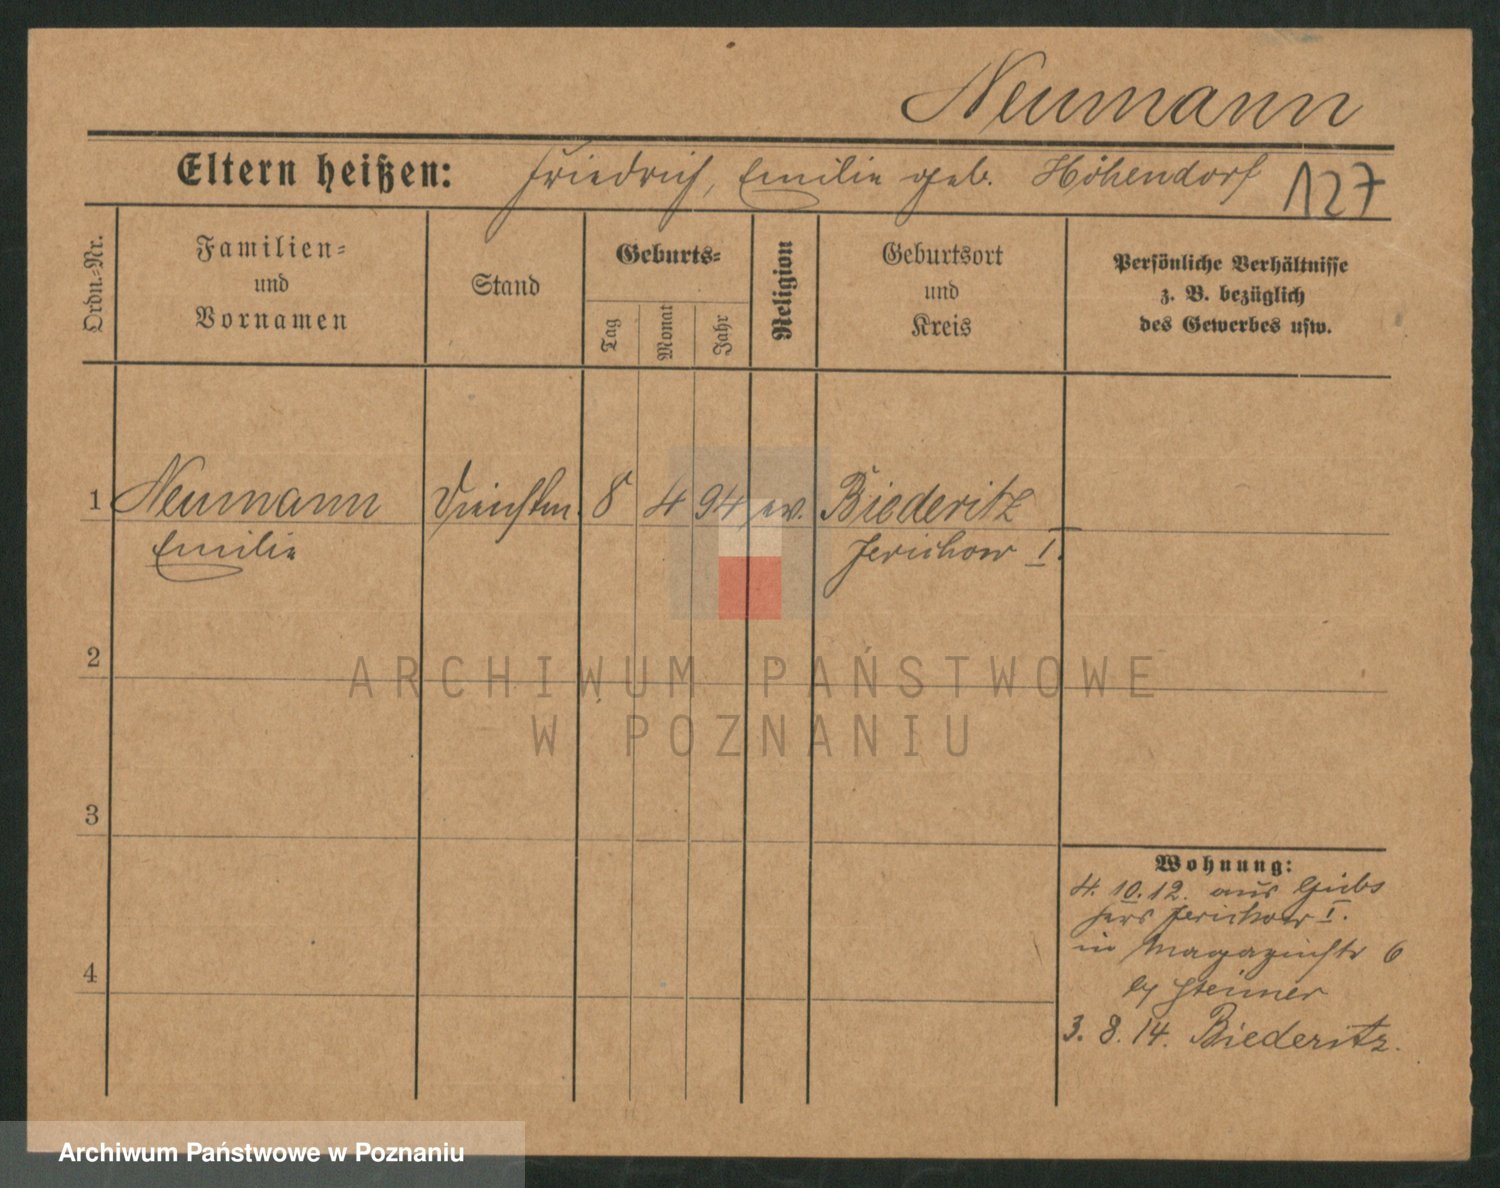 Neumann
Eltern heißen: Friedrich, Emilie geb. Höhendorf 127
Ordn.=Nr.
Familien=
und
Vornamen
Stand
Geburts=
Tag
Monat
Jahr
Religion
Geburtsort
und
Kreis
Persönliche Verhältnisse
z. B. bezüglich
des Gewerbes usw.
1 Neumann Dienstm. 8 4 94 ev. Biederitz
Emilie Jerichow I.
2
ARCHIWUM PAŃSTWOWE
W POZNANIU
3
Wohnung:
4. 10. 12. aus
Jerichow I.
4
in Magazinstr 6
b/ Steimer
3. 8. 14. Biederitz.
Archiwum Państwowe w Poznaniu